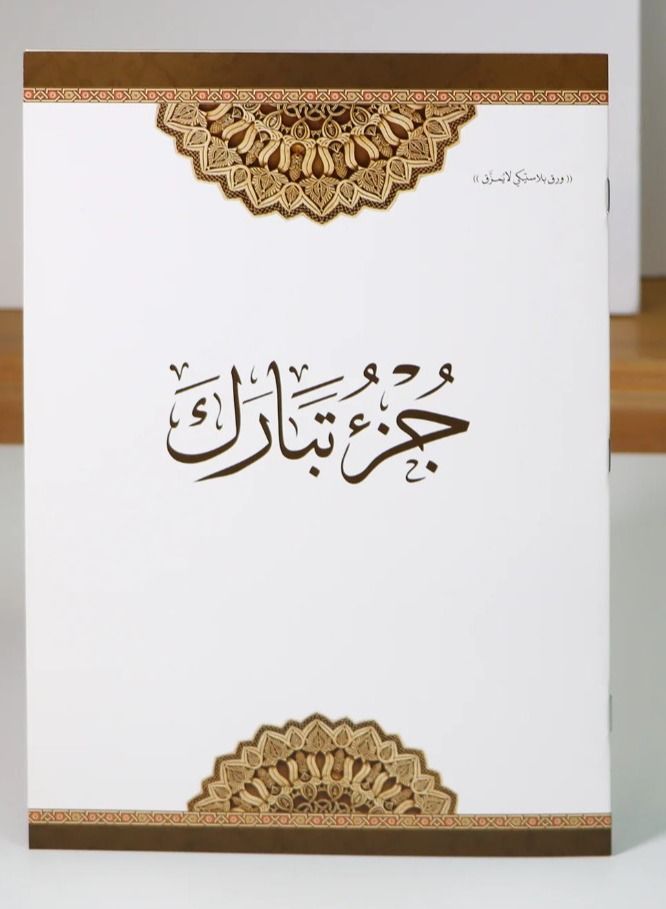 (( ورق بلاستيكي لا يُمزَّق ))
جُزْءُ تَبَارَكَ